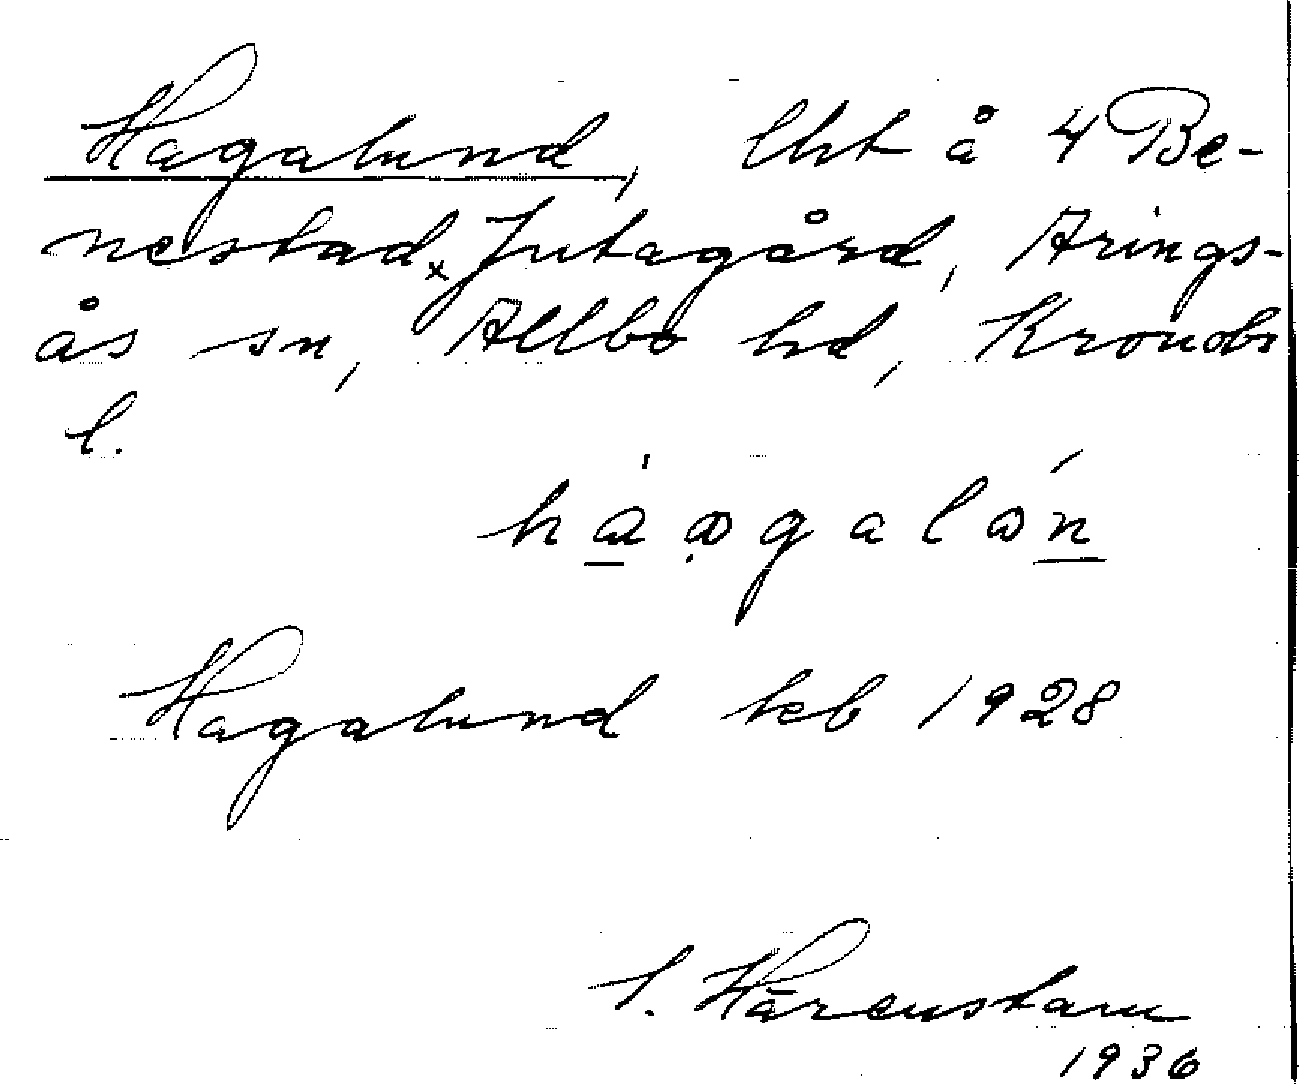 Hagalund, lht å 4 Be-
nestad × Jutagård, Arings-
ås sn, Allbo hd, Kronobs
l.
Hagalund keb 1928
S. Härenstam
1936